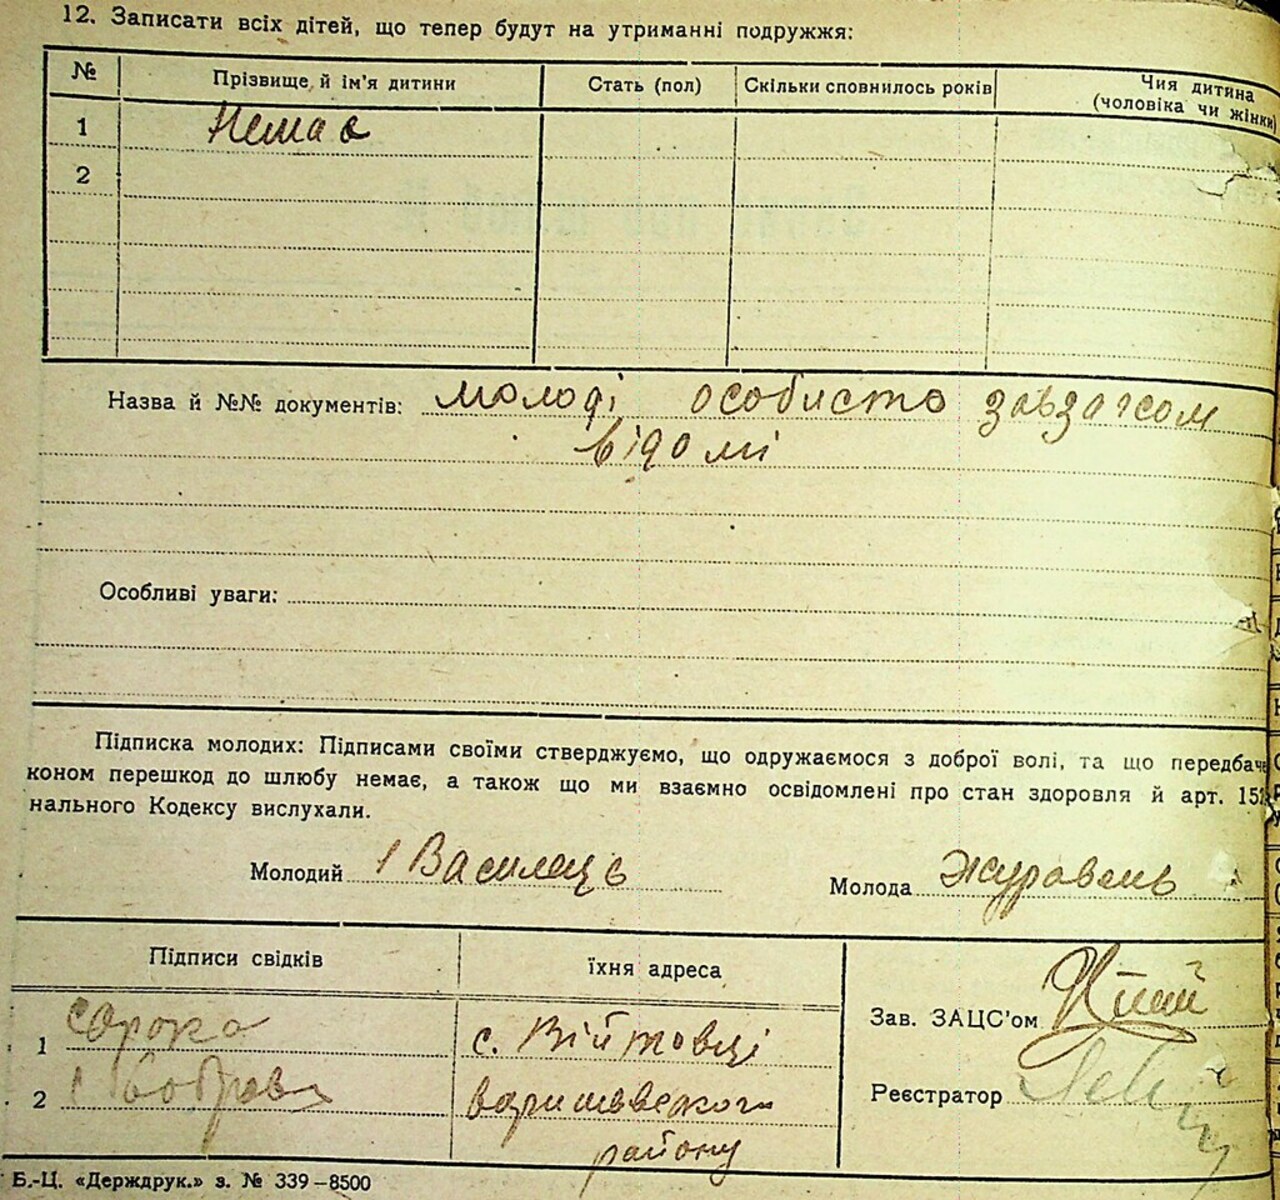 12. Записати всіх дітей, що тепер будут на утриманні подружжя:
№ Прізвище й ім'я дитини Стать (пол) Скільки сповнилось років Чия дитина
(чоловіка чи жінки)
1 Немає
2
Назва й №№ документів: молоді особисто завзагсом
відомі
Особливі уваги:
Підписка молодих: Підписами своїми стверджуємо, що одружаємося з доброї волі, та що передбаче
коном перешкод до шлюбу немає, а також що ми взаємно освідомлені про стан здоровля й арт. 152
нального Кодексу вислухали.
Молодий Василець Молода Журавель
Підписи свідків їхня адреса
Зав. ЗАЦС'ом
1 Сорока с. Війтовці
Реєстратор
2 района
району
Б.-Ц. «Держдрук.» з. № 339–8500